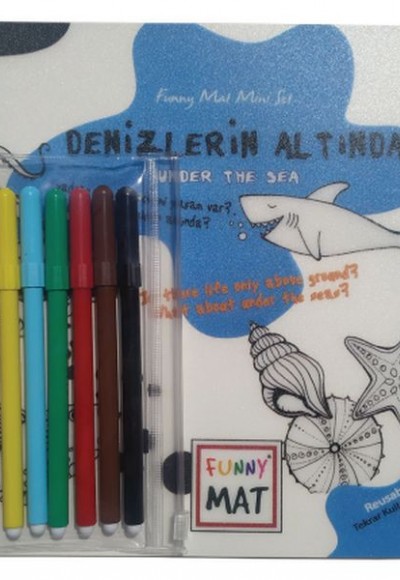 Funny Mat Mini Set
DENİZLERİN ALTINDA
UNDER THE SEA
var?
life only above ground?
about under the seas?
FUNNY
MAT
Reusab
Tekrar Kull